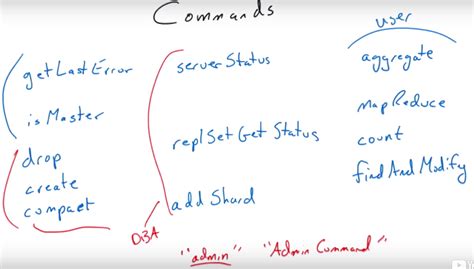 Commands
user
getLastError
isMaster
drop
create
compact
serverStatus
replSetGetStatus
addShard
aggregate
mapReduce
count
findAndModify
DBA
"admin" "Admin Command"